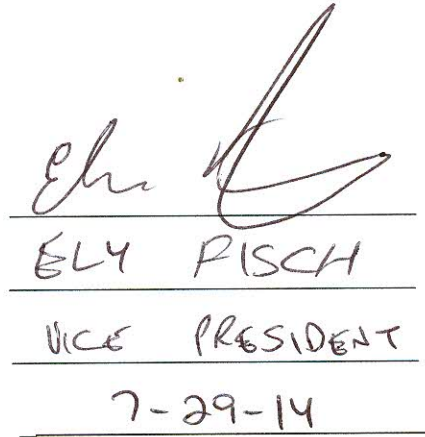 ELY FISCH
VICE PRESIDENT
7-29-14